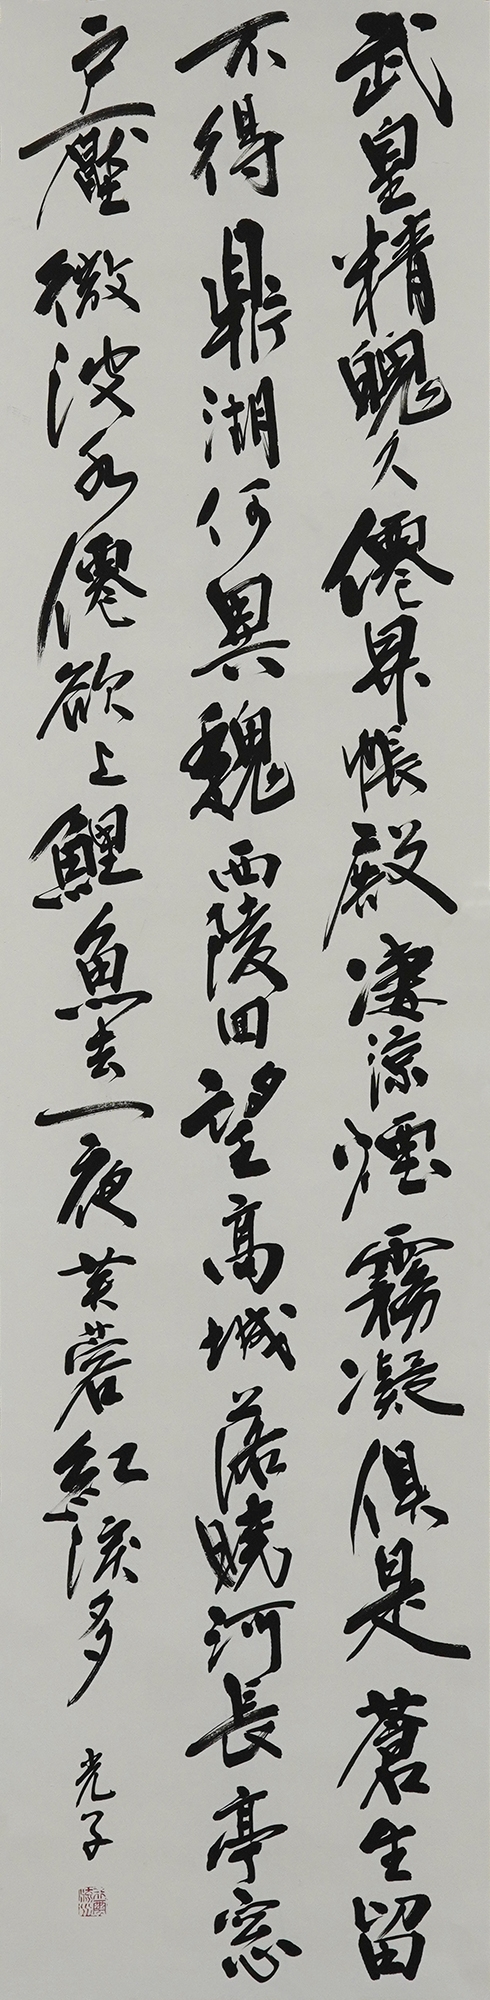 武皇精魄久僊昇帳殿凄涼煙霧凝俱是蒼生留
不得鼎湖何異魏西陵回望高城落曉河長亭窓
戶壓微波水僊欲上鯉魚去一夜芙蓉紅涙多
光子